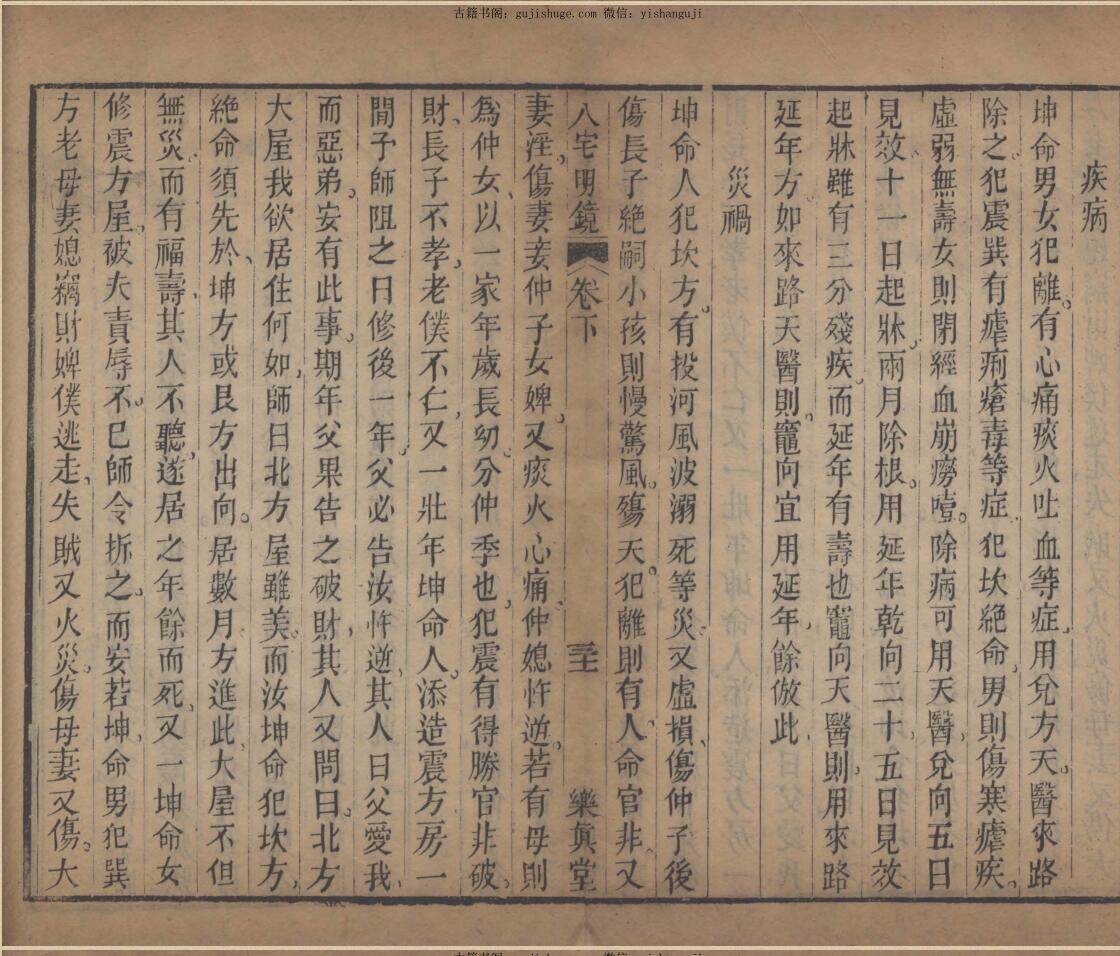 古籍书阁：gujishuge.com 微信：yishanguji
疾病
坤命男女犯離。有心痛痰火吐血等症，用兌方天醫來路
除之。犯震巽有瘧痢瘡毒等症，犯坎絕命，男則傷寒瘧疾，
虛弱無壽，女則閉經血崩癆噎。除病可用天醫，兌向五日
見效，十一日起牀，兩月除根。用延年乾向二十五日見效
起牀，雖有三分殘疾，而延年有壽也。竈向天醫，則用來路
延年方，如來路天醫，則竈向宜用延年，餘倣此
災禍
坤命人犯坎方。有投河風波溺死等災，又虛損，傷仲子，後
傷長子絕嗣，小孩則慢驚風殤夭。犯離則有人命官非，又
八宅明鏡 卷下 三十 樂真堂
妻淫，傷妻妾仲子女婢。又痰火心痛，仲媳忤逆。若有母則
為仲女，以一家年歲長幼分仲季也，犯震有得勝官非破
財，長子不孝，老僕不仁，又一壯年坤命人。添造震方房一
間，子師阻之曰，修後一年，父必告汝忤逆，其人曰，父愛我
而惡弟，安有此事。期年父果告之破財，其人又問曰。北方
大屋我欲居住何如，師曰，北方屋雖美，而汝坤命犯坎方，
絕命，須先於坤方或艮方出向。居數月，方進此大屋，不但
無災，而有福壽，其人不聽，遂居之年餘而死，又一坤命女
修震方屋，被夫責辱不已，師令拆之，而安若坤命男犯巽
方，老母妻媳竊財，婢僕逃走，失賊又火災。傷母妻，又傷大